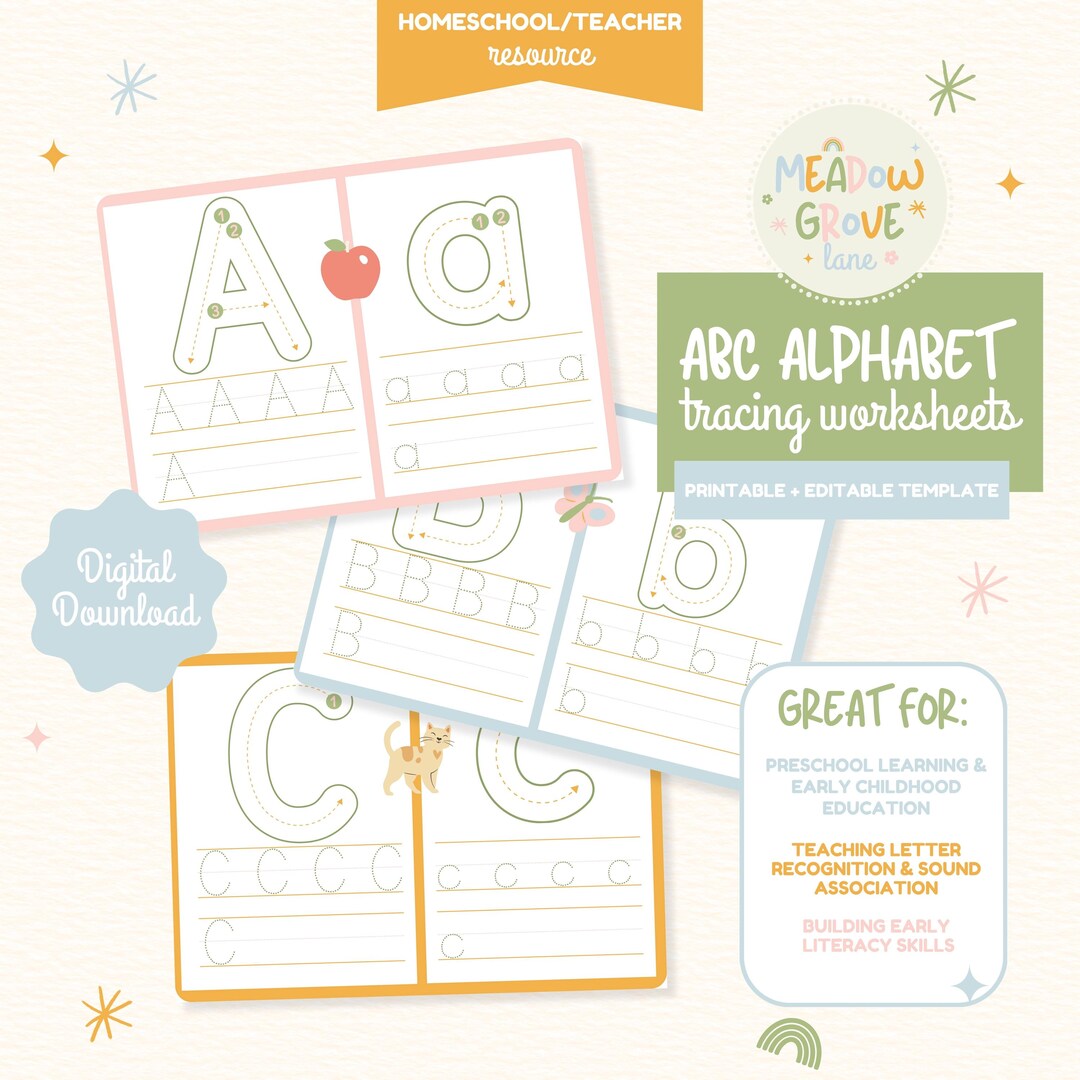 HOMESCHOOL/TEACHER
resource
MEADOW
GROVE
lane
ABC ALPHABET
tracing worksheets
PRINTABLE + EDITABLE TEMPLATE
A a
1 1 2
2
3
A A A A a a a a
A a
Digital
Download
B b
2
B B B B b b b b
B b
C c
1
C C C C c c c c
C c
GREAT FOR:
PRESCHOOL LEARNING &
EARLY CHILDHOOD
EDUCATION
TEACHING LETTER
RECOGNITION & SOUND
ASSOCIATION
BUILDING EARLY
LITERACY SKILLS